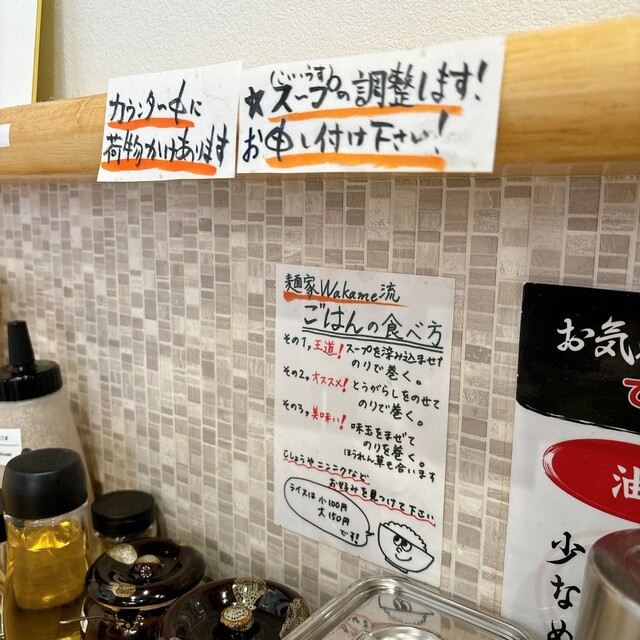 カウンター中に
荷物かけあります
(じいうす)
★スープの調整します!
お申し付け下さい!
麺家Wakame流
ごはんの食べ方
その1, 王道! スープを染み込ませて
のりで巻く。
その2, オススメ! とうがらしをのせて
のりで巻く。
その3, 美味い! 味玉をまぜて
のりを巻く。
ほうれん草も合います
こしょうやニンニクなど
お好みを見つけて下さい。
ライスは小100円
大150円
です!
お気
油
少なめ